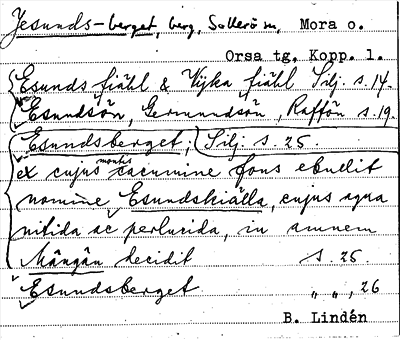 Jesunds-berget, berg, Sollerön, Mora o.
Orsa tg. Kopp. l.
Esunds fiähl & Wijka fiähl Silj. s. 14.
Esundsön, Germundsön, Raffön s. 19.
Esundsberget; Silj. s. 25.
ex cujus montis cacumine fons ebullit
nomine Esundskiälla, cujus aqua
nitida ac perlucida, in amnem
Mångån decidit s. 25.
Esundsberget " ", 26
B. Lindén